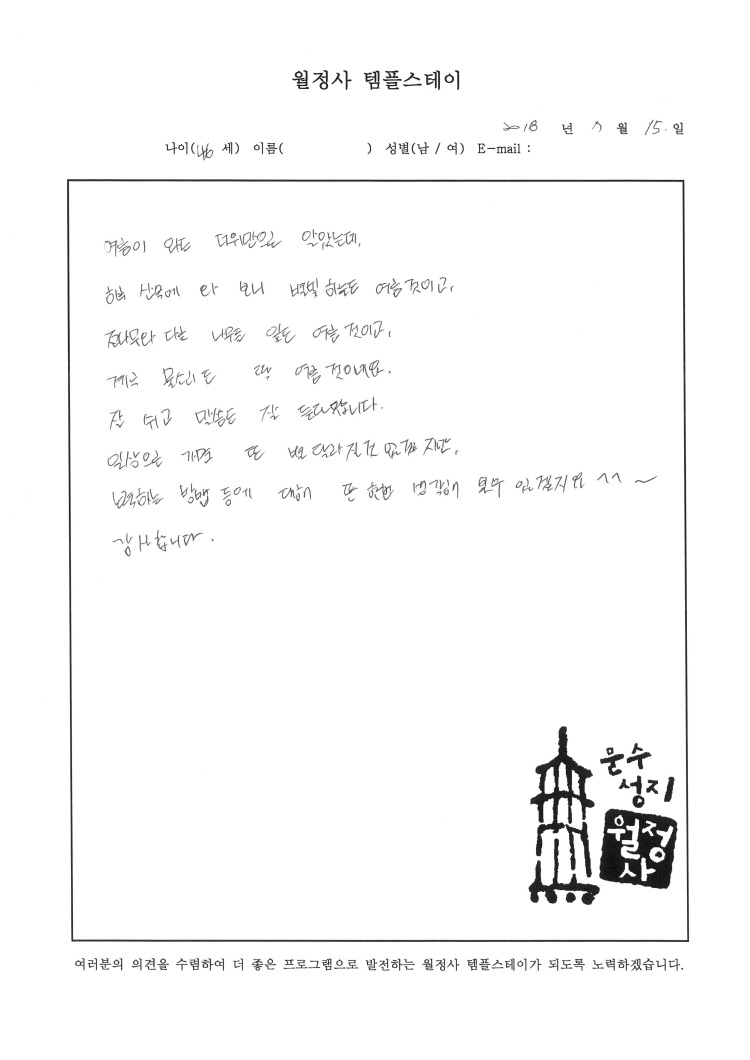 월정사 템플스테이
2018 년 7 월 15. 일
나이(46 세) 이름( ) 성별(남 / 여) E-mail :
여름이 와도 더위만있을 알았는데,
산속에 와 보니 하늘도 여름 것이고,
전나무와 다른 나무들 잎도 여름 것이고,
계곡 물소리도 딱 여름 것이네요.
잘 쉬고 말씀도 잘 듣다갑니다.
일상으로 가면 또 별 달라질 것 없겠지만,
노력하는 방법 등에 대해 또 한번 생각해 볼 수 있겠지요 ^^ ~
감사합니다.
문수
성지
월정
사
여러분의 의견을 수렴하여 더 좋은 프로그램으로 발전하는 월정사 템플스테이가 되도록 노력하겠습니다.